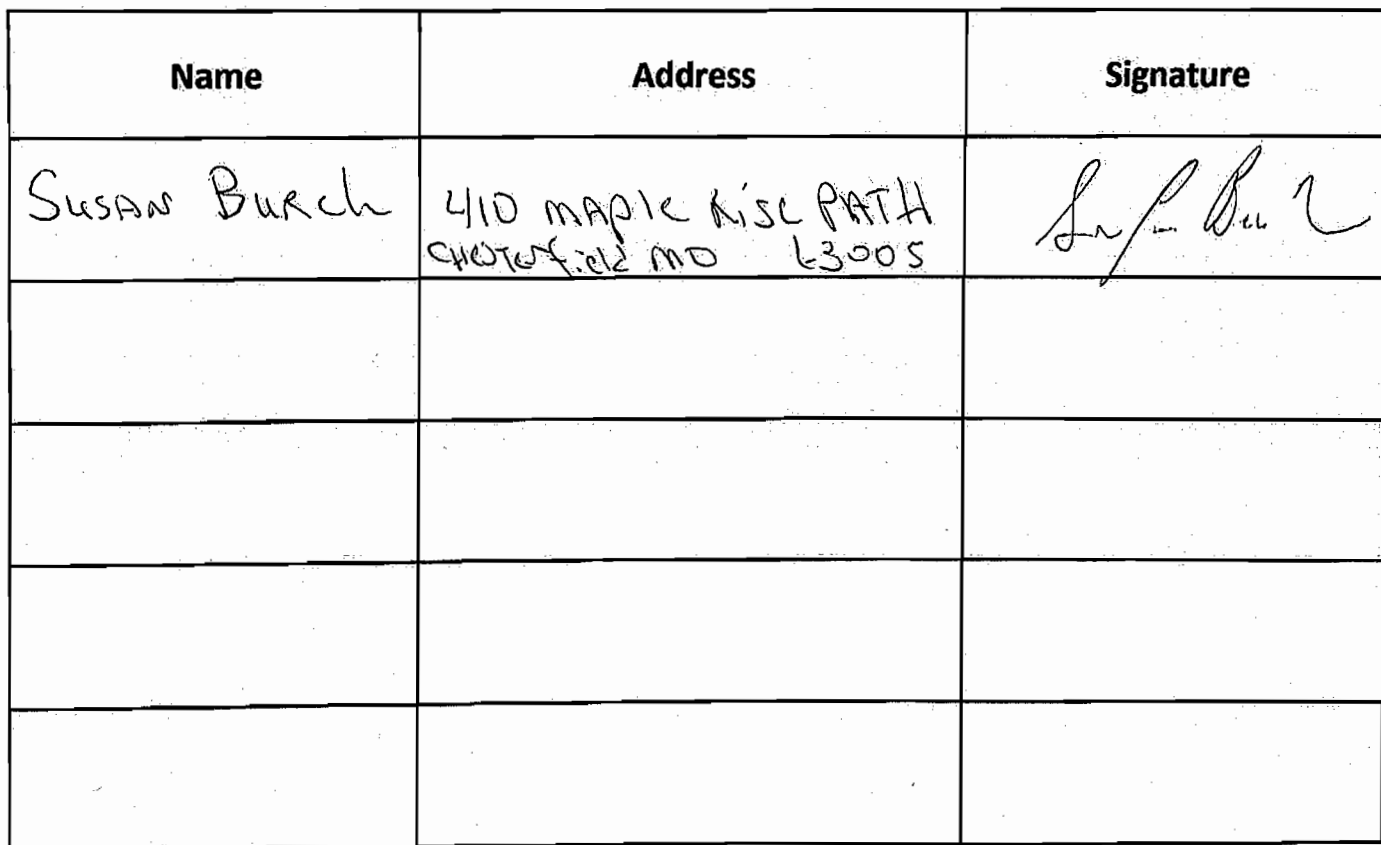 Name Address Signature
Susan Burch 410 Maple Rise PATH
Chesterfield MO 63005